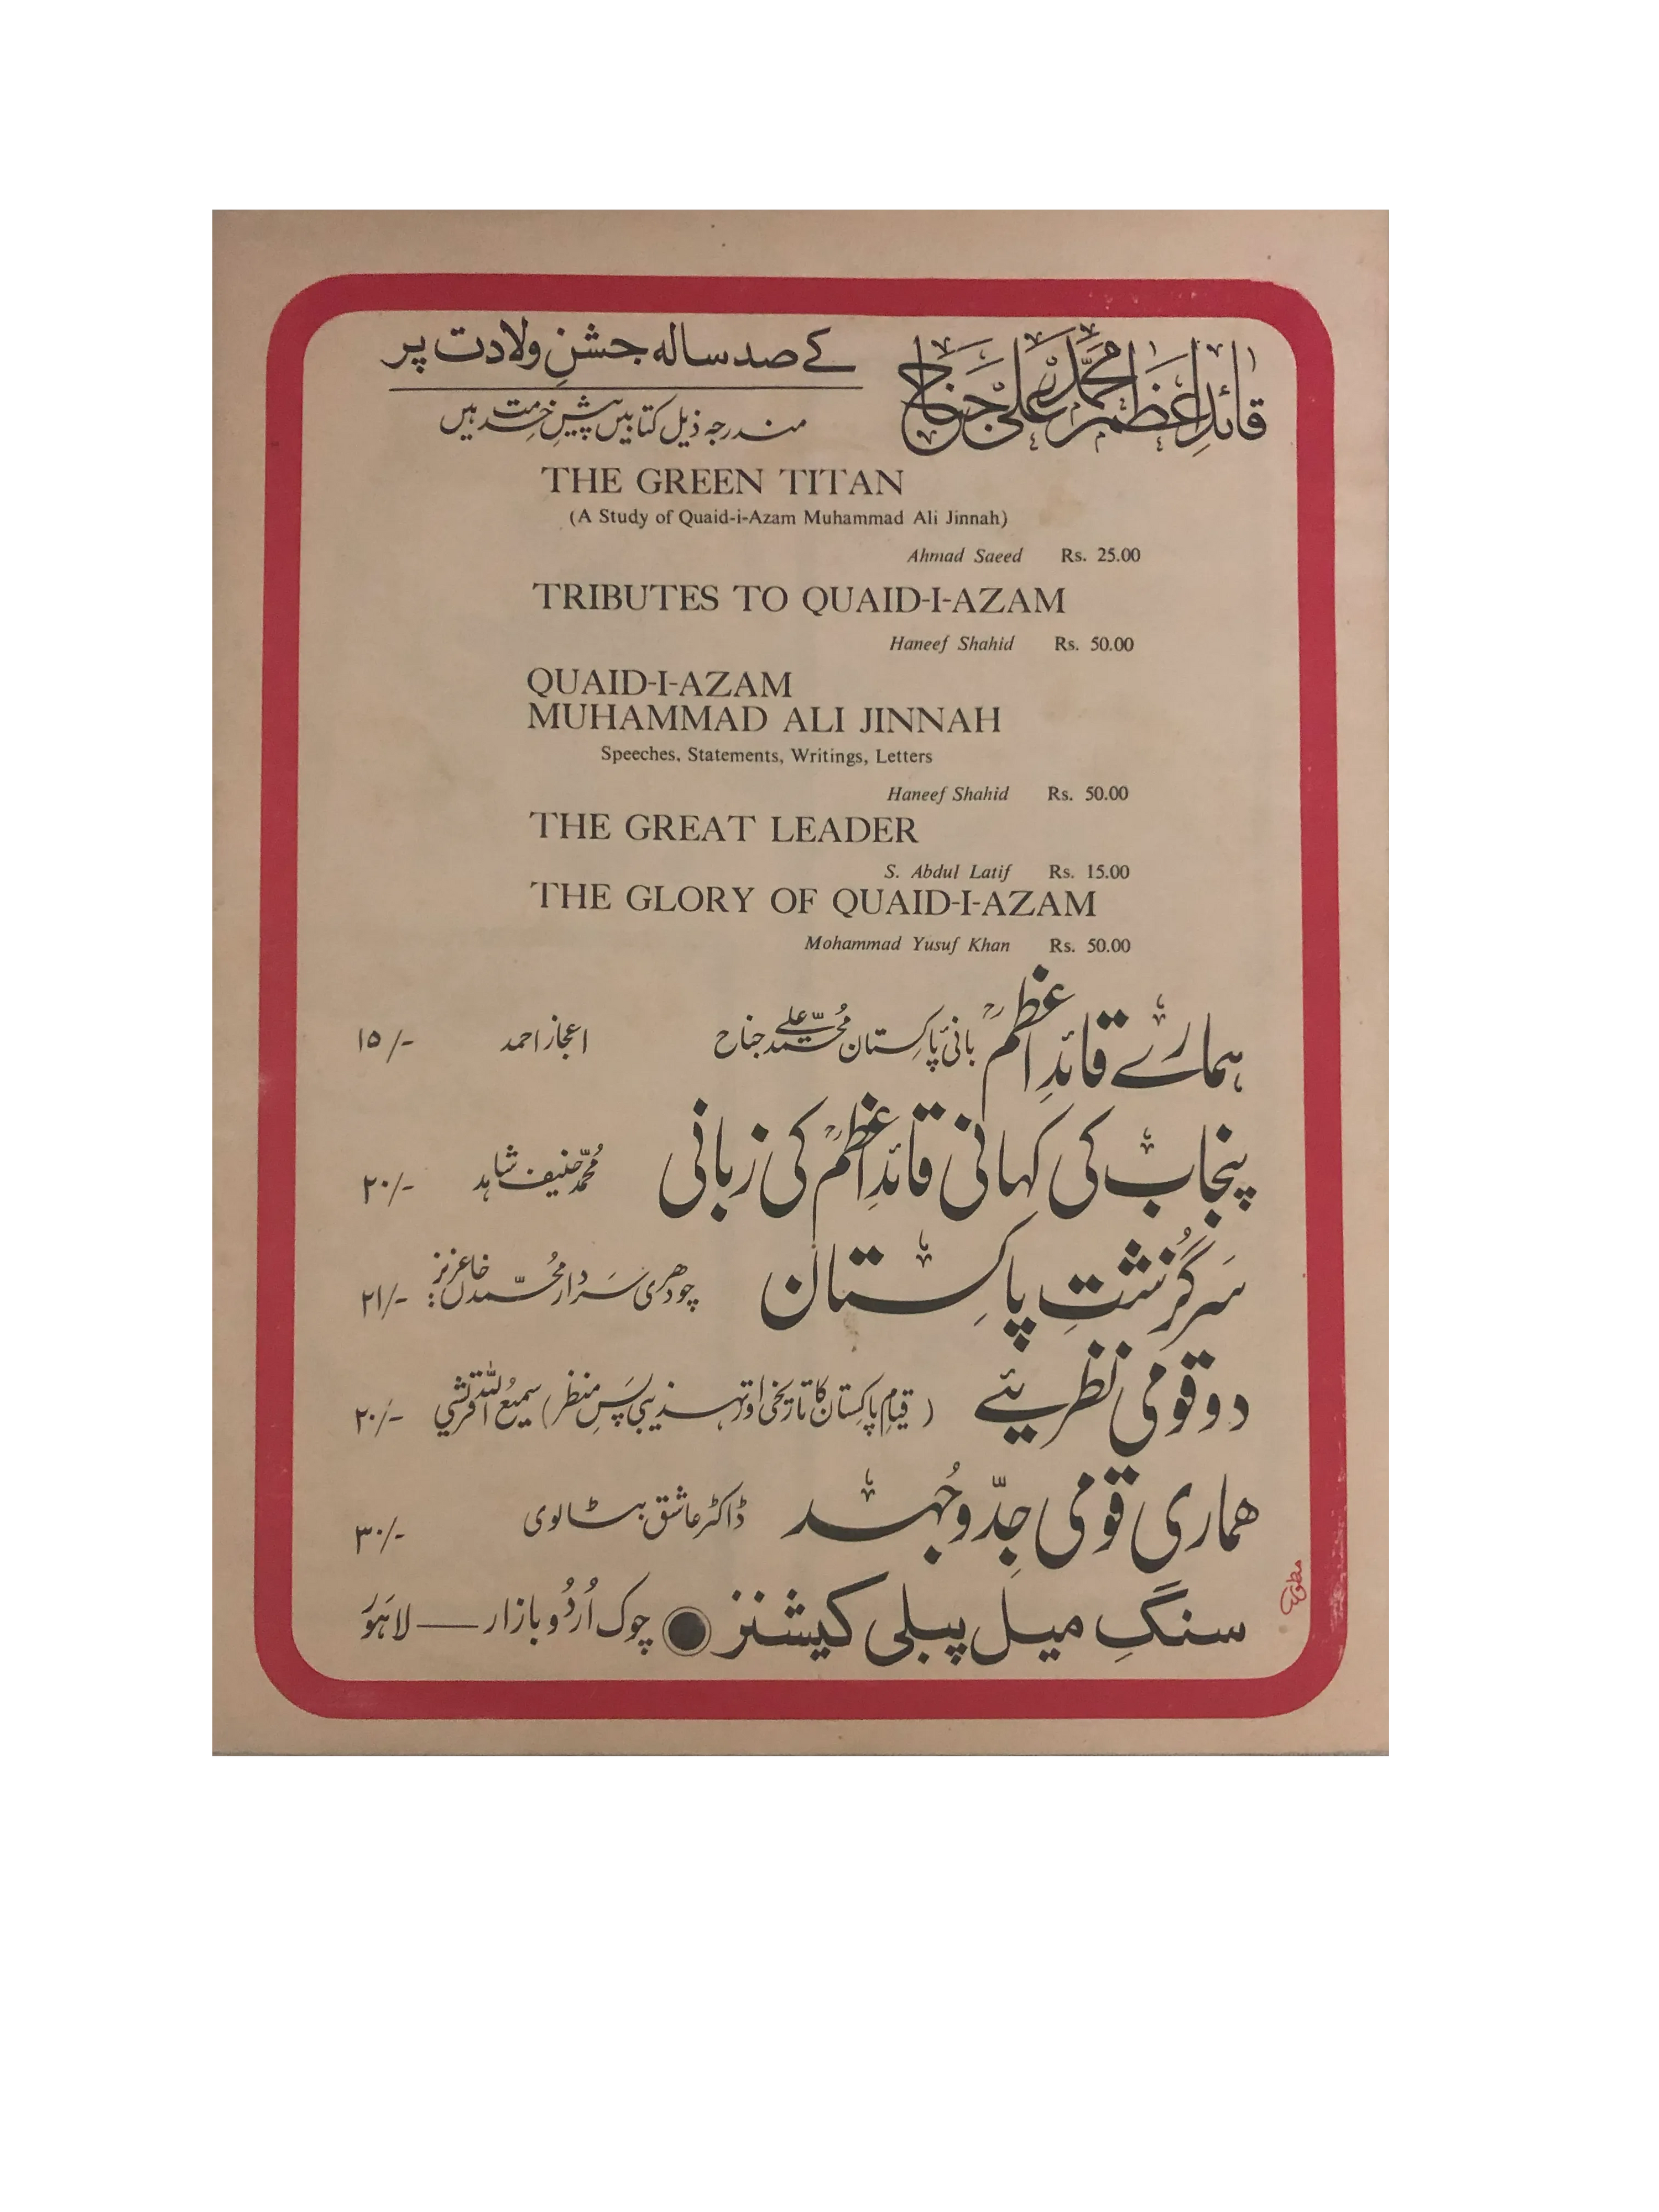 قائدِ اعظم محمد علی جناح
کے صد سالہ جشنِ ولادت پر
مندرجہ ذیل کتابیں پیشِ خدمت ہیں
THE GREEN TITAN
(A Study of Quaid-i-Azam Muhammad Ali Jinnah)
Ahmad Saeed Rs. 25.00
TRIBUTES TO QUAID-I-AZAM
Haneef Shahid Rs. 50.00
QUAID-I-AZAM
MUHAMMAD ALI JINNAH
Speeches, Statements, Writings, Letters
Haneef Shahid Rs. 50.00
THE GREAT LEADER
S. Abdul Latif Rs. 15.00
THE GLORY OF QUAID-I-AZAM
Mohammad Yusuf Khan Rs. 50.00
ہمارے قائدِ اعظمؒ بانیٔ پاکستان محمد علی جناح اعجاز احمد ۱۵/-
پنجاب کی کہانی قائدِ اعظمؒ کی زبانی محمد حنیف شاہد ۲۰/-
سرگزشتِ پاکستان چودھری سردار محمد خاں عزیز ۲۱/-
دو قومی نظریئے (قیامِ پاکستان کا تاریخی اور تہذیبی پس منظر) سمیع اللہ قریشی ۲۰/-
ھماری قومی جدّوجُہد ڈاکٹر عاشق بٹالوی ۳۰/-
سنگِ میل پبلی کیشنز ● چوک اُردو بازار — لاہور